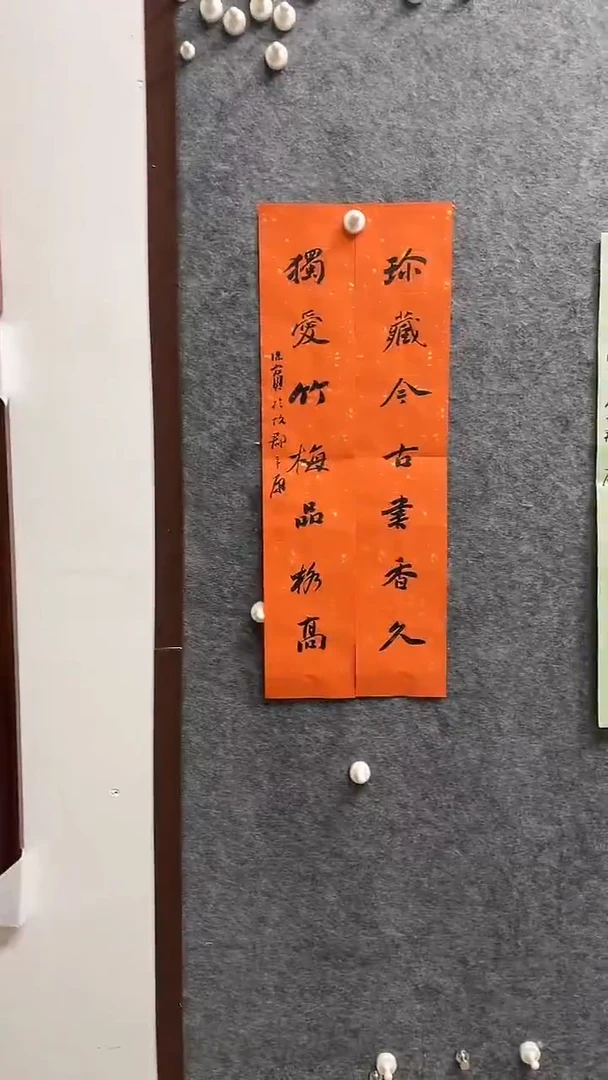 珍藏今古書香久
獨愛竹梅品格高